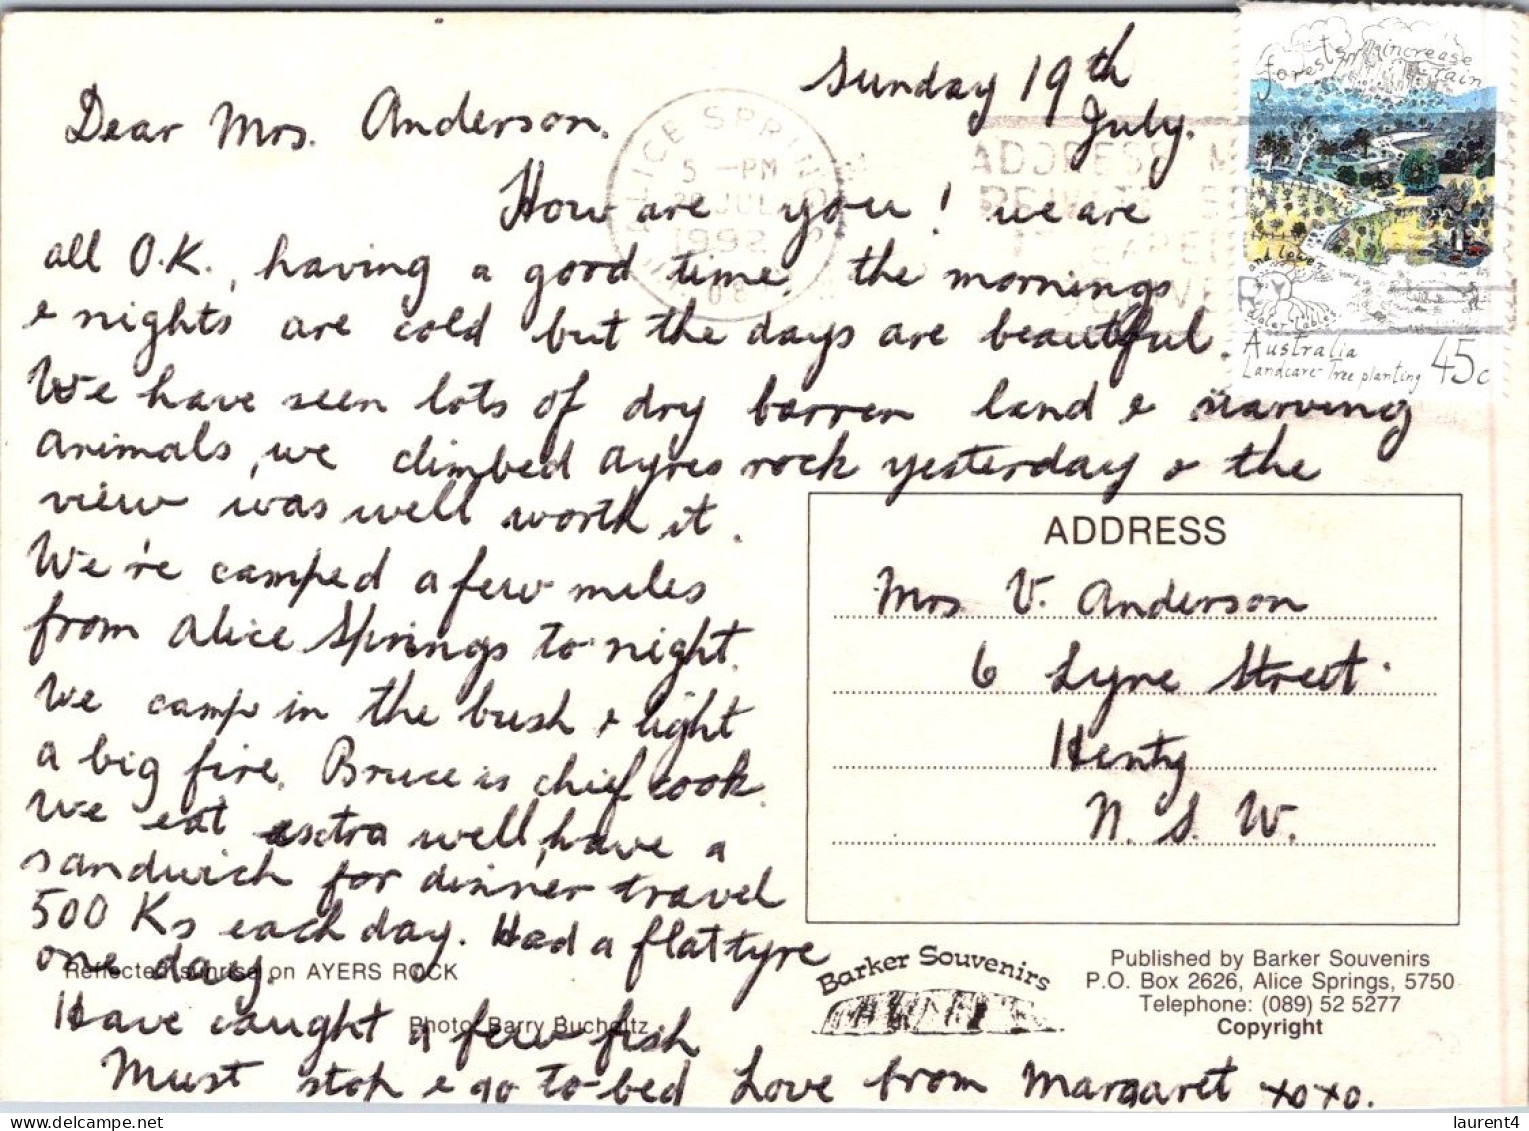 Sunday 19th
July.
Dear Mrs. Anderson.
How are you! we are
all O.K., having a good time. the mornings
& nights are cold but the days are beautiful.
We have seen lots of dry barren land & starving
animals, we climbed Ayres rock yesterday & the
view was well worth it.
We're camped a few miles
from Alice Springs to-night.
We camp in the bush & light
a big fire. Bruce is chief cook.
We eat extra well, have a
sandwich for dinner travel
500 Ks each day. Had a flat tyre
one day.
Have caught a few fish
Must stop & go to-bed Love from Margaret xoxo.
ALICE SPRINGS
5 -PM
JUL
1992
forests increase
rain
and lower
water tables
Australia
Landcare-Tree planting 45c
ADDRESS
Mrs V. Anderson
6 Lyne Street.
Henty
N. S. W.
Reflected sunrise on AYERS ROCK
Photo: Barry Bucholtz
Barker Souvenirs
Published by Barker Souvenirs
P.O. Box 2626, Alice Springs, 5750
Telephone: (089) 52 5277
Copyright
laurent4